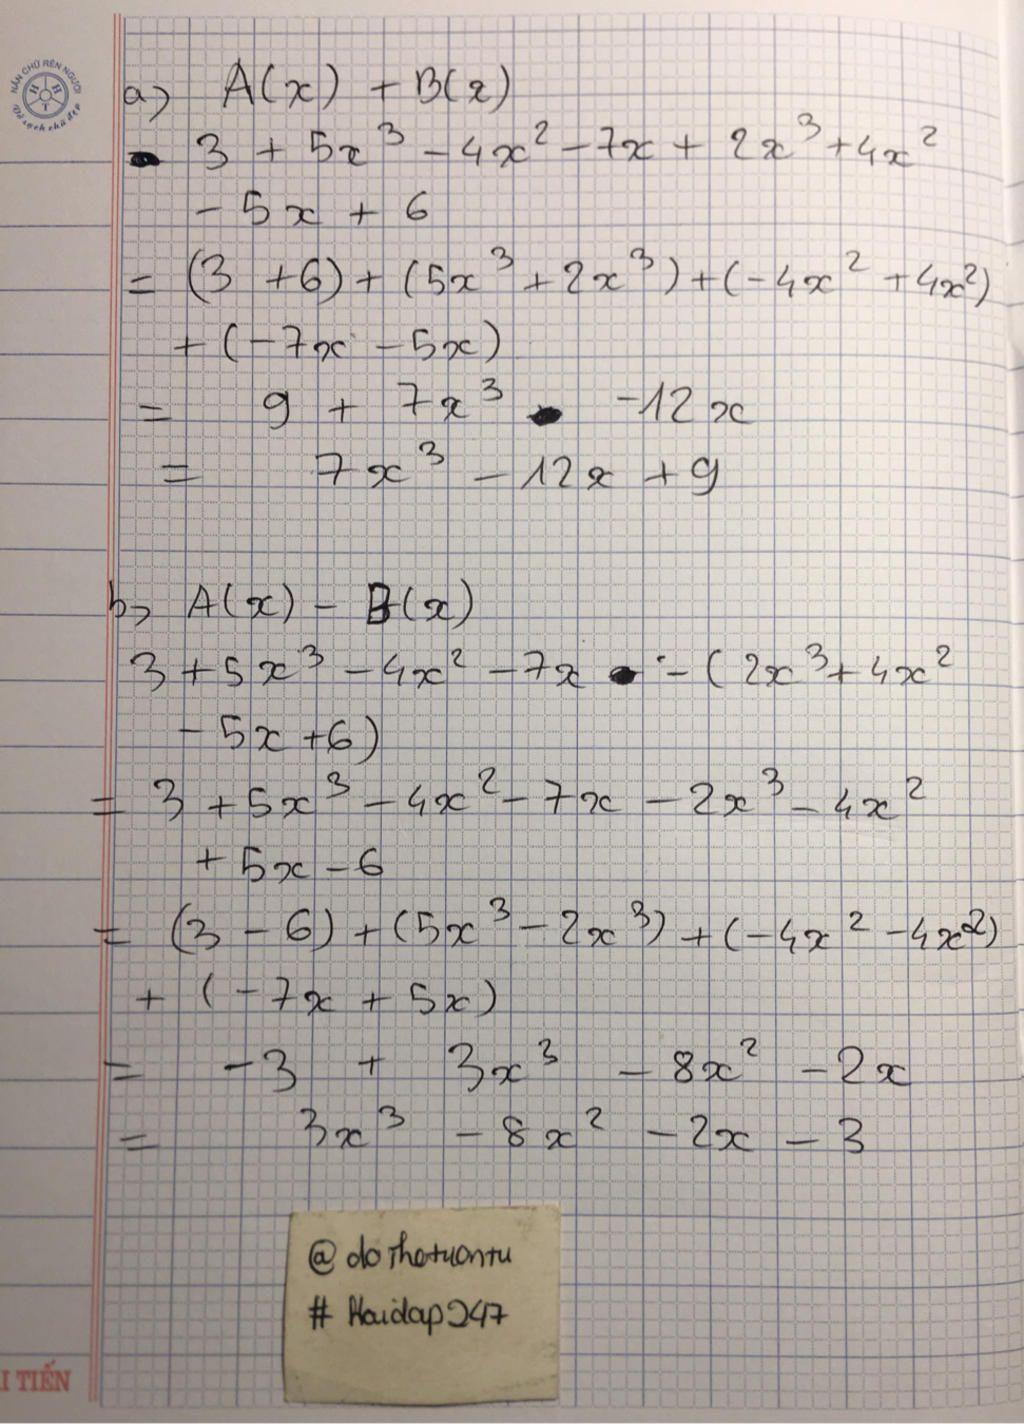 NẮN CHỮ RÈN NGƯỜI
HHT
Vở sạch chữ đẹp
a) A(x) + B(x)
3 + 5x³ - 4x² - 7x + 2x³ + 4x²
- 5x + 6
= (3 + 6) + (5x³ + 2x³) + (-4x² + 4x²)
+ (-7x - 5x)
= 9 + 7x³ -12x
= 7x³ - 12x + 9
b) A(x) - B(x)
3 + 5x³ - 4x² - 7x - (2x³ + 4x²
- 5x + 6)
= 3 + 5x³ - 4x² - 7x - 2x³ - 4x²
+ 5x - 6
= (3 - 6) + (5x³ - 2x³) + (-4x² - 4x²)
+ (-7x + 5x)
= -3 + 3x³ - 8x² - 2x
= 3x³ - 8x² - 2x - 3
# Hoidap247
I TIẾN